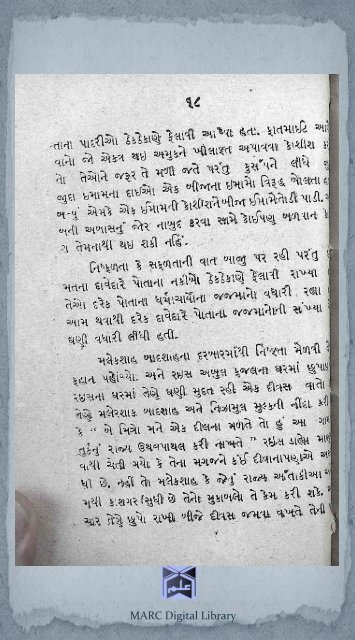 ૧૮
-તાના પાદરીઓ ઠેકઠેકાણે ફેલાવી આપ્યા હતા. ફાતમાઈટ આ
વાના જો એકત્ર થઇ અમુકને ખીલાફત અપાવવા કોશીશ ક
તો તેઓને જરૂર તે મળી જતે પરંતુ કુસંપને લીધે
જુદા ઇમામના દાઇઓ એક બીજાના ઇમામો વિરૂદ્ધ બોલતા હ
બન્યું એમકે એક ઇમામની કોશીશને બીજા ઇમામે તોડી પાડી.
બની અબાસનું જોર નાબુદ કરવા સામે કોઈપણ બળવાન
તેમનાથી થઇ શકી નહિં.
નિષ્ફળતા કે સફળતાની વાત બાજુ પર રહી પરંતુ
મતના દાવેદારે પોતાના નકીબો ઠેકઠેકાણે ફેલાવી રાખ્યા
તેઓ દરેક પોતાના ધર્માચાર્યોના જજમાનો વધારી રહ્યા
આમ થવાથી દરેક દાવેદારે પોતાના જજમાનોની સંખ્યા
ઘણી વધારી લીધી હતી.
મલેકશાહ બાદશાહના દરબારમાંથી નિષ્ફળતા મેળવી
અને રઇસ અબુલ ફઝલના ઘરમાં છુપા
રઇસના ઘરમાં તેણે ઘણી મુદત રહી એક દીવસ વાતો
તેણે મલેકશાહ બાદશાહ અને નિઝામુલ મુલ્કની નીંદા કરી
કે " બે મિત્રો મને એક દીલના મળેતે તો હું આ ગા
તુર્કનું રાજ્ય ઉથલપાથલ કરી નાખતે " રઇસ ડાહ્યો મા
વાથી ચેતી ગયો કે તેના મગજને કંઈ દીવાનાપણાએ
ઘો છે, નહીં તો મલેકશાહ કે જેનું રાજ્ય અંતાકીઆ
મથી કાશગર સુધી છે તેનો મુકાબલો તે કેમ કરી શકે.
ચાર તેણે છુપો રાખી બીજે દીવસ જમવા વખતે તેની
MARC Digital Library